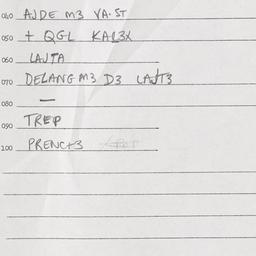 040 AJDE M3 VA. ST
050 + QGL KAL3X
060 LAJTA
070 DELANG M3 D3 LAJT3
080 —
090 TREP
100 PRENCT3